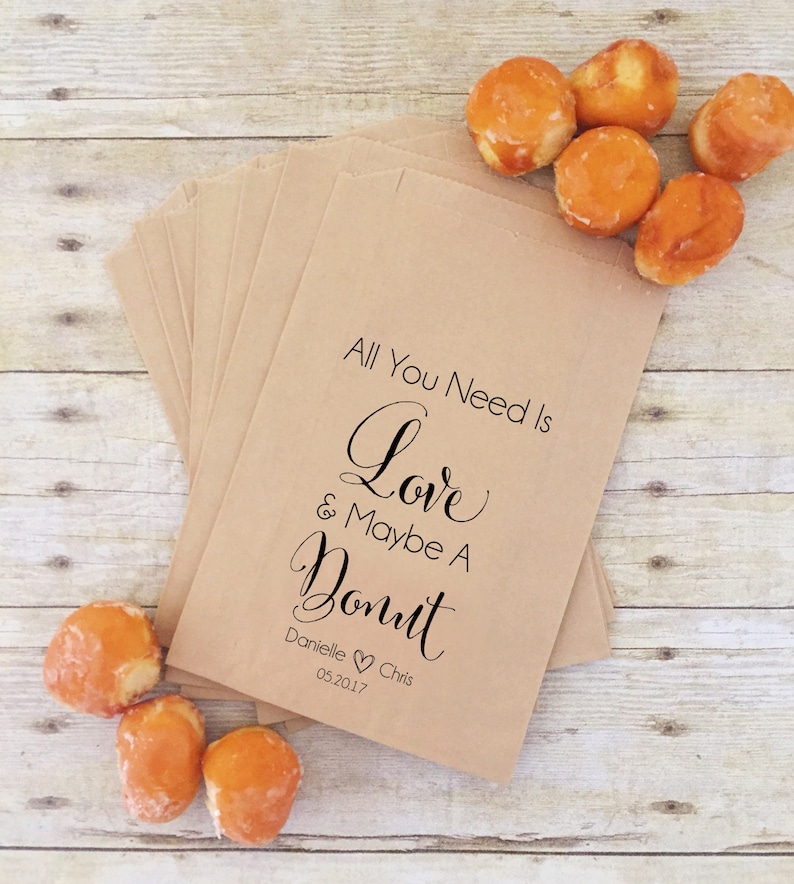 All You Need Is
Love
& Maybe A
Donut
Danielle ♡ Chris
05.20.17